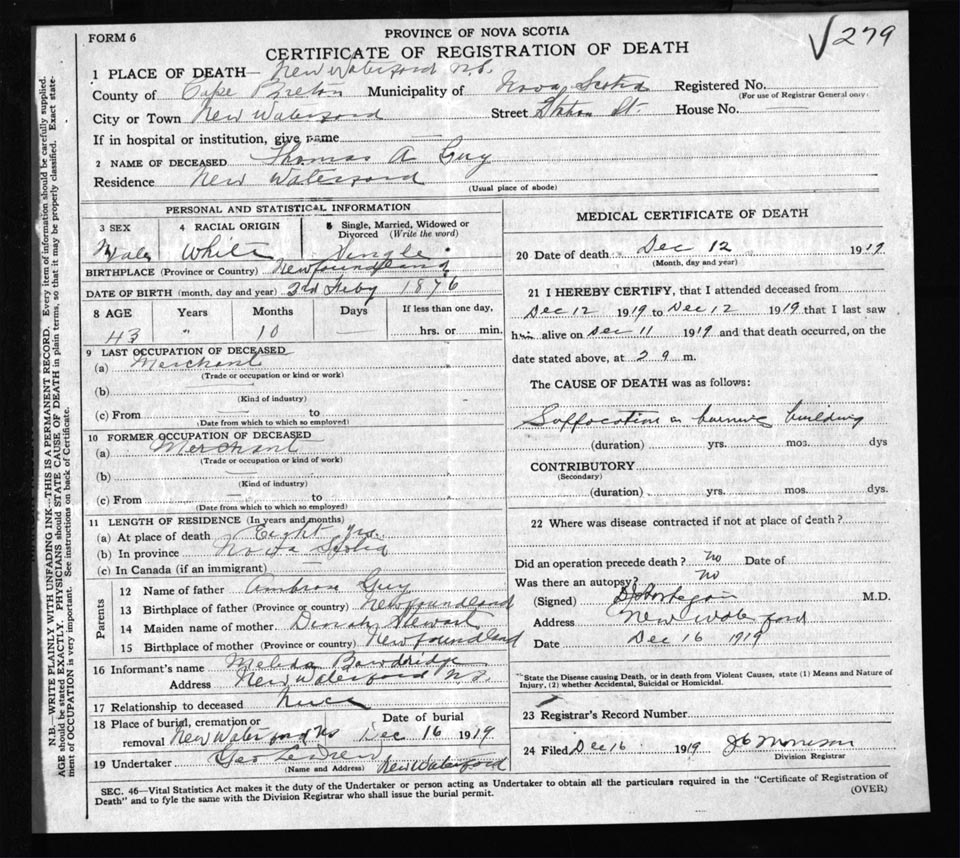 FORM 6
PROVINCE OF NOVA SCOTIA
CERTIFICATE OF REGISTRATION OF DEATH
√279
1 PLACE OF DEATH— New Waterford N.S.
County of Cape Breton Municipality of Nova Scotia Registered No.
(For use of Registrar General only.)
City or Town New Waterford Street Station St. House No. —
If in hospital or institution, give name —
2 NAME OF DECEASED Thomas A Guy
Residence New Waterford
(Usual place of abode)
PERSONAL AND STATISTICAL INFORMATION
3 SEX 4 RACIAL ORIGIN 5 Single, Married, Widowed or Divorced (Write the word)
Male White Single
BIRTHPLACE (Province or Country) Newfoundland
DATE OF BIRTH (month, day and year) 3rd Feby 1876
8 AGE Years Months Days If less than one day,
43 " 10 — hrs. or min.
9 LAST OCCUPATION OF DECEASED
(a) Merchant
(Trade or occupation or kind or work)
(b)
(Kind of industry)
(c) From to
(Date from which to which so employed)
10 FORMER OCCUPATION OF DECEASED
(a) Merchant
(Trade or occupation or kind of work)
(b) —
(Kind of industry)
(c) From — to
(Date from which to which so employed)
11 LENGTH OF RESIDENCE (In years and months)
(a) At place of death Eight yrs.
(b) In province Nova Scotia
(c) In Canada (if an immigrant) —
Parents
12 Name of father Ambrose Guy
13 Birthplace of father (Province or country) Newfoundland
14 Maiden name of mother Dinah Stewart
15 Birthplace of mother (Province or country) Newfoundland
16 Informant's name Melinda
Address New Waterford N.S.
17 Relationship to deceased Niece
18 Place of burial, cremation or Date of burial
removal New Waterford NS Dec 16 1919
19 Undertaker Geo
(Name and Address) New Waterford
MEDICAL CERTIFICATE OF DEATH
20 Date of death Dec 12 1919
(Month, day and year)
21 I HEREBY CERTIFY, that I attended deceased from
Dec 12 1919 to Dec 12 1919 that I last saw
him alive on Dec 11 1919 and that death occurred, on the
date stated above, at 2 a m.
The CAUSE OF DEATH was as follows:
Suffocation in burning building
(duration) yrs. mos. dys
CONTRIBUTORY
(Secondary)
(duration) yrs. mos. dys.
22 Where was disease contracted if not at place of death?
Did an operation precede death? no Date of
Was there an autopsy? no
(Signed) M.D.
Address New Waterford
Date Dec 16 1919
*State the Disease causing Death, or in death from Violent Causes, state (1) Means and Nature of
Injury, (2) whether Accidental, Suicidal or Homicidal.
23 Registrar's Record Number
24 Filed Dec 16 1919 Morrison
Division Registrar
SEC. 46—Vital Statistics Act makes it the duty of the Undertaker or person acting as Undertaker to obtain all the particulars required in the "Certificate of Registration of
Death" and to fyle the same with the Division Registrar who shall issue the burial permit.
(OVER)
N.B.—WRITE PLAINLY WITH UNFADING INK—THIS IS A PERMANENT RECORD. Every item of information should be carefully supplied.
AGE should be stated EXACTLY. PHYSICIANS should STATE CAUSE OF DEATH in plain terms, so that it may be properly classified. Exact state-
ment of OCCUPATION is very important. See instructions on back of Certificate.